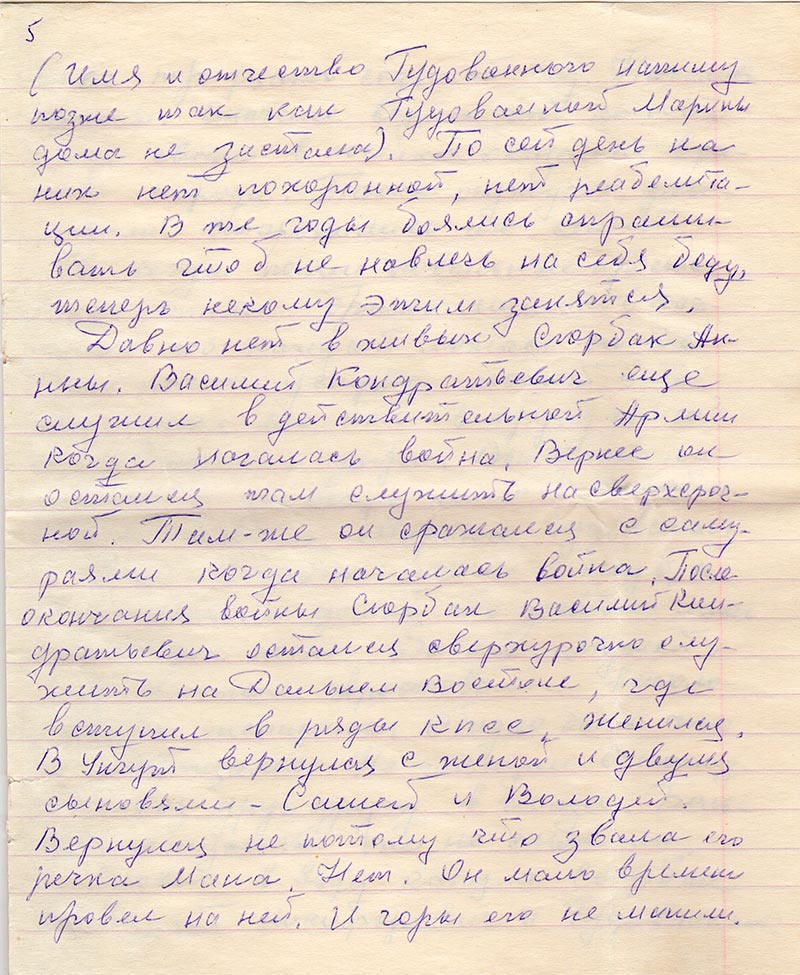 5
(Имя и отчество Гудованного напишу
позже так как Гудованной Марины
дома не застала). По сей день на
них нет похоронной, нет реабелита-
ции. В те годы боялись спраши-
вать чтоб не навлечь на себя беду,
теперь некому этим занятся.
Давно нет в живых Скорбак Ан-
нны. Василий Кондратьевич еще
служил в действительной Армии
когда началась война. Вернее он
остался там служить на сверхсроч-
ной. Там-же он сражался с саму-
раями когда началась война. После
окончания войны Скорбак Василий Кон-
дратьевич остался сверхурочно слу-
жить на Дальнем Востоке, где
вступил в ряды КПСС, женился.
В Унгут вернулся с женой и двумя
сыновями - Сашей и Володей.
Вернулся не потому что звала его
речка Мана. Нет. Он мало времени
провел на ней. И горы его не манили.